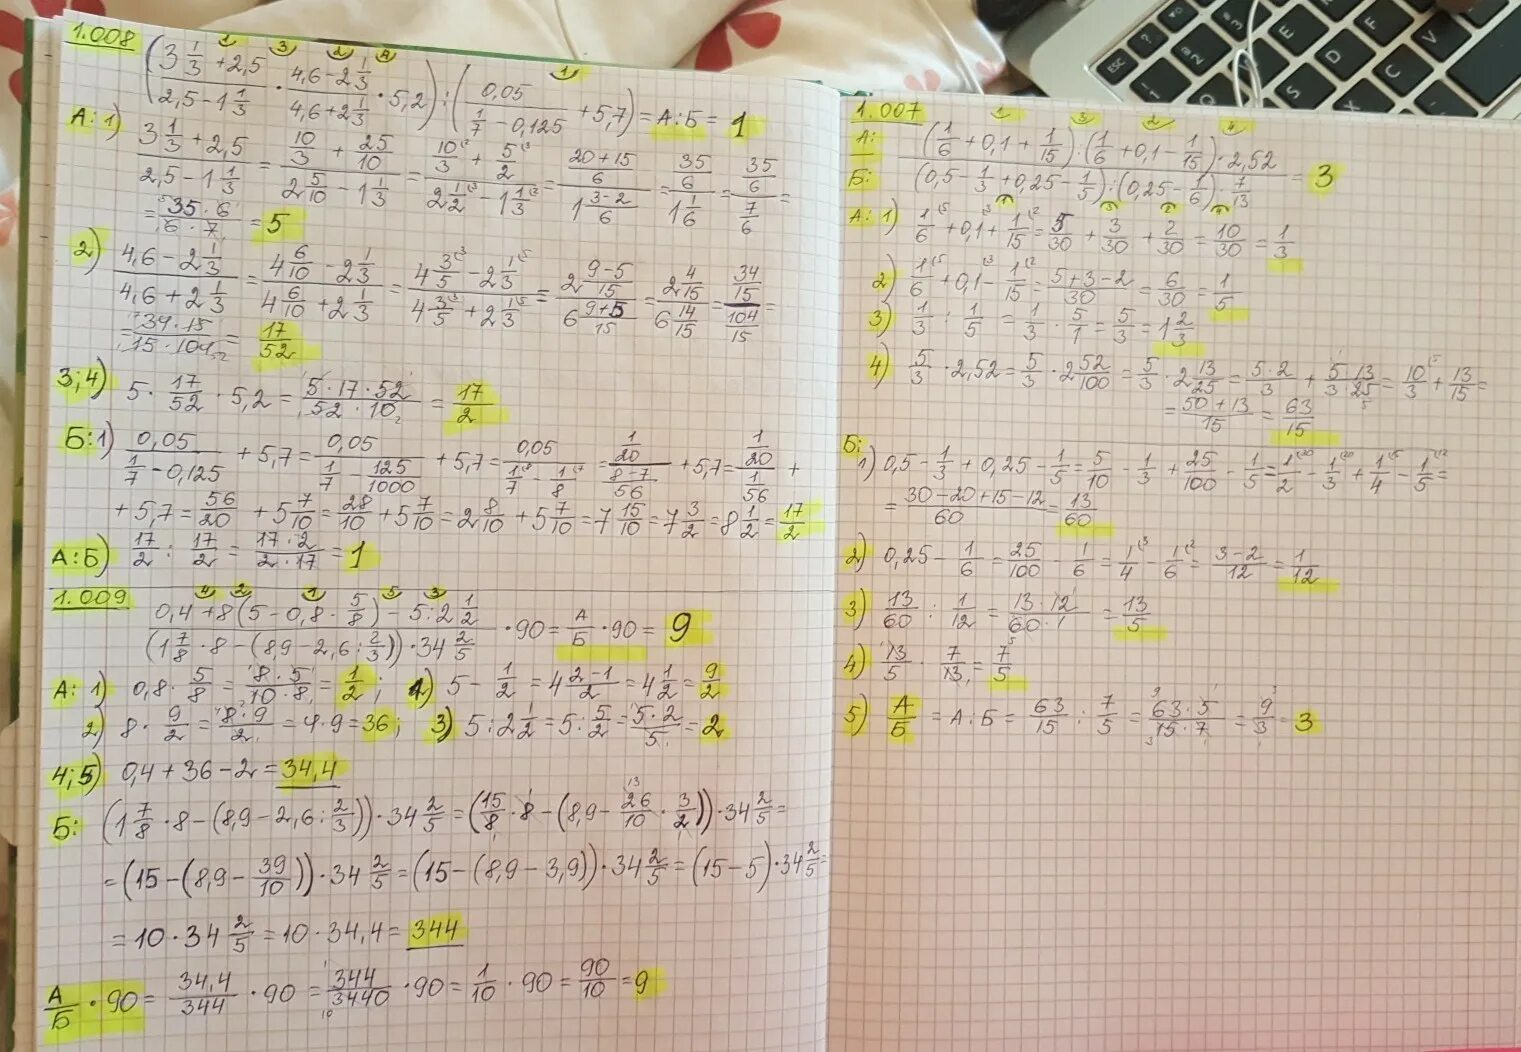 1.008 ((3 1/3 + 2,5)/(2,5 - 1 1/3) · (4,6 - 2 1/3)/(4,6 + 2 1/3) · 5,2) : (0,05/(1/7 - 0,125) + 5,7) = А:Б = 1
А: 1) (3 1/3 + 2,5)/(2,5 - 1 1/3) = (10/3 + 25/10)/(2 5/10 - 1 1/3) = (10/3 + 5/2)/(2 1/2 - 1 1/3) = ((20+15)/6)/(1 (3-2)/6) = (35/6)/(1 1/6) = (35/6)/(7/6) =
= (35·6)/(6·7) = 5
2) (4,6 - 2 1/3)/(4,6 + 2 1/3) = (4 6/10 - 2 1/3)/(4 6/10 + 2 1/3) = (4 3/5 - 2 1/3)/(4 3/5 + 2 1/3) = (2 (9-5)/15)/(6 (9+5)/15) = (2 4/15)/(6 14/15) = (34/15)/(104/15) =
= (34·15)/(15·104) = 17/52
3;4) 5 · 17/52 · 5,2 = (5·17·52)/(52·10) = 17/2
Б: 1) 0,05/(1/7 - 0,125) + 5,7 = 0,05/(1/7 - 125/1000) + 5,7 = 0,05/(1/7 - 1/8) = (1/20)/((8-7)/56) + 5,7 = (1/20)/(1/56) +
+ 5,7 = 56/20 + 5 7/10 = 28/10 + 5 7/10 = 2 8/10 + 5 7/10 = 7 15/10 = 7 3/2 = 8 1/2 = 17/2
А:Б) 17/2 : 17/2 = (17·2)/(2·17) = 1
1.009 (0,4 + 8(5 - 0,8 · 5/8) - 5 : 2 1/2)/((1 7/8 · 8 - (8,9 - 2,6 : 2/3)) · 34 2/5) · 90 = А/Б · 90 = 9
А: 1) 0,8 · 5/8 = (8·5)/(10·8) = 1/2; 1) 5 - 1/2 = 4 (2-1)/2 = 4 1/2 = 9/2
2) 8 · 9/2 = (8·9)/2 = 4·9 = 36; 3) 5 : 2 1/2 = 5 : 5/2 = (5·2)/5 = 2
4;5) 0,4 + 36 - 2 = 34,4
Б: (1 7/8 · 8 - (8,9 - 2,6 : 2/3)) · 34 2/5 = (15/8 · 8 - (8,9 - 26/10 · 3/2)) · 34 2/5 =
= (15 - (8,9 - 39/10)) · 34 2/5 = (15 - (8,9 - 3,9)) · 34 2/5 = (15 - 5) · 34 2/5 =
= 10 · 34 2/5 = 10 · 34,4 = 344
А/Б · 90 = 34,4/344 · 90 = 344/3440 · 90 = 1/10 · 90 = 90/10 = 9
1.007
А: (1/6 + 0,1 + 1/15) : (1/6 + 0,1 - 1/15) · 2,52
Б: (0,5 - 1/3 + 0,25 - 1/5) : (0,25 - 1/6) · 7/13 = 3
А: 1) 1/6 + 0,1 + 1/15 = 5/30 + 3/30 + 2/30 = 10/30 = 1/3
2) 1/6 + 0,1 - 1/15 = (5+3-2)/30 = 6/30 = 1/5
3) 1/3 : 1/5 = 1/3 · 5/1 = 5/3 = 1 2/3
4) 5/3 · 2,52 = 5/3 · 2 52/100 = 5/3 · 2 13/25 = (5·2)/3 + (5·13)/(3·25) = 10/3 + 13/15 =
= (50+13)/15 = 63/15
Б:
1) 0,5 - 1/3 + 0,25 - 1/5 = 5/10 - 1/3 + 25/100 - 1/5 = 1/2 - 1/3 + 1/4 - 1/5 =
= (30-20+15-12)/60 = 13/60
2) 0,25 - 1/6 = 25/100 - 1/6 = 1/4 - 1/6 = (3-2)/12 = 1/12
3) 13/60 : 1/12 = (13·12)/(60·1) = 13/5
4) 13/5 · 7/13 = 7/5
5) А/Б = А:Б = 63/15 : 7/5 = (63·5)/(15·7) = 9/3 = 3
ESC